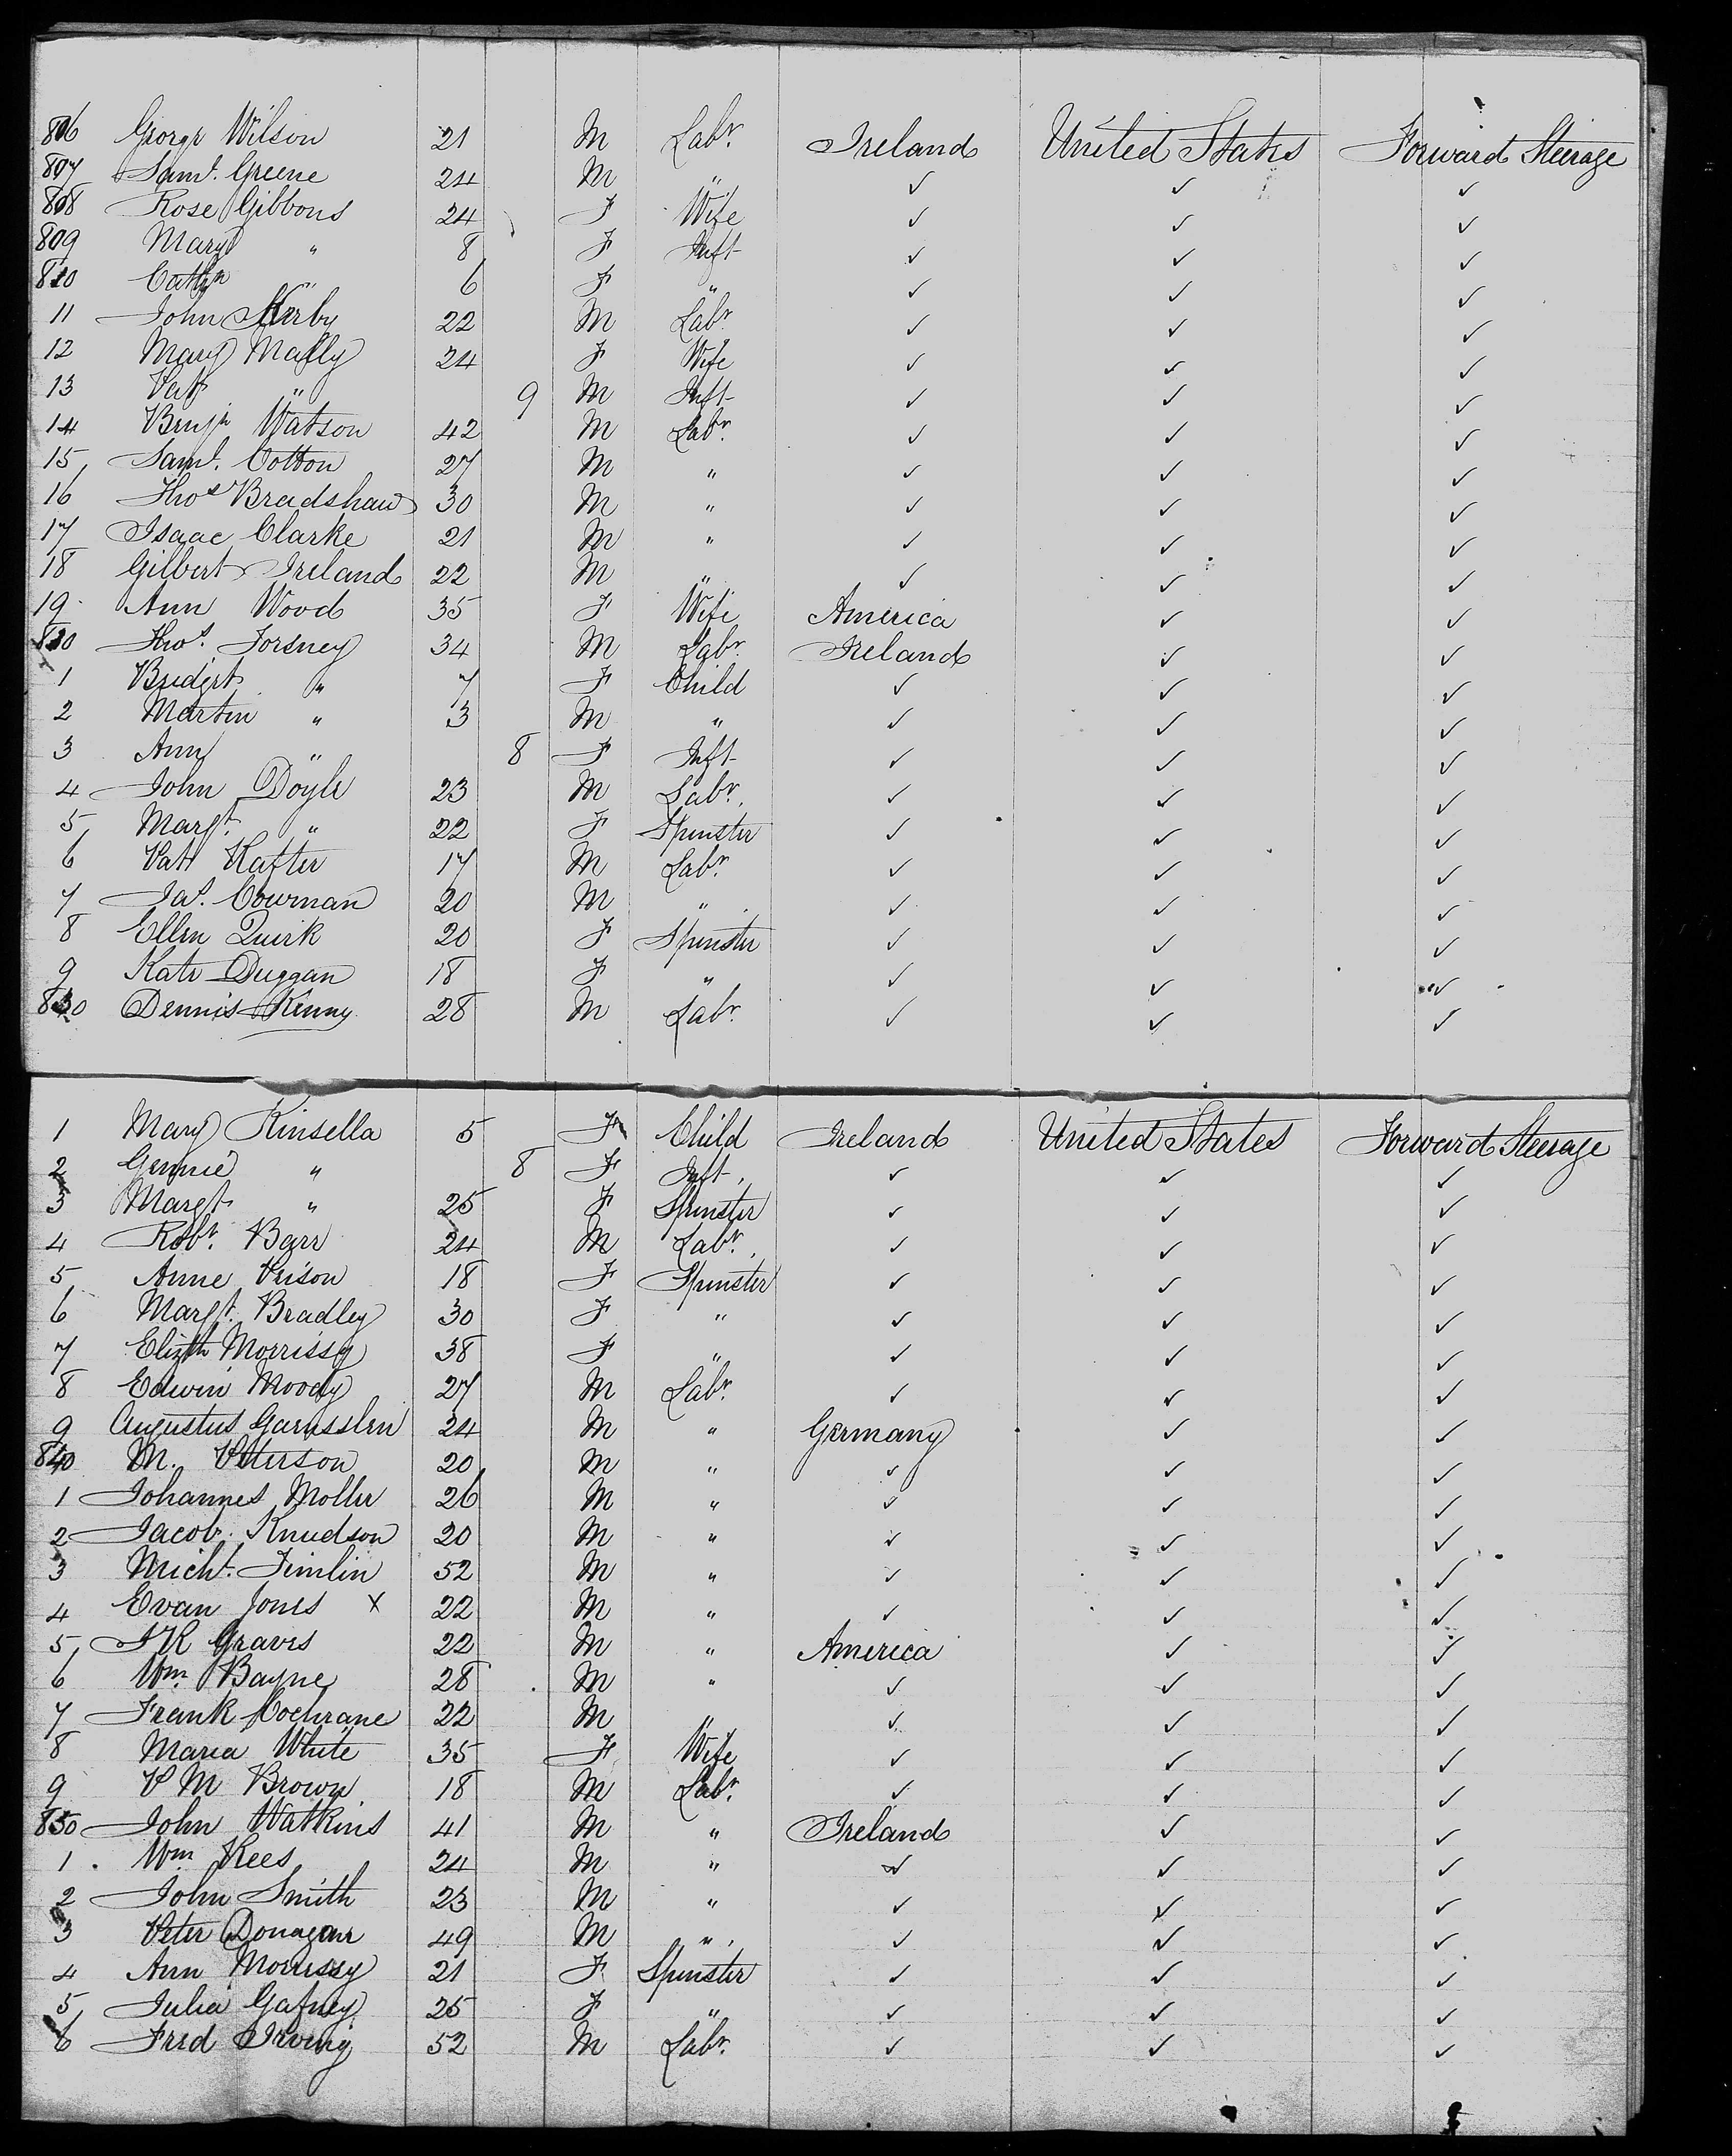 806 George Wilson 21 M Labr. Ireland United States Forward Steerage
807 Saml. Greene 24 M " ✓ ✓ ✓
808 Rose Gibbons 24 F Wife ✓ ✓ ✓
809 Mary " 8 F Inft ✓ ✓ ✓
810 Cathn " 6 F " ✓ ✓ ✓
11 John Kirby 22 M Labr. ✓ ✓ ✓
12 Mary Mally 24 F Wife ✓ ✓ ✓
13 Pat " 9 M Inft ✓ ✓ ✓
14 Benjn Watson 42 M Labr. ✓ ✓ ✓
15 Saml. Cotton 27 M " ✓ ✓ ✓
16 Thos Bradshaw 30 M " ✓ ✓ ✓
17 Isaac Clarke 21 M " ✓ ✓ ✓
18 Gilbert Ireland 22 M " ✓ ✓ ✓
19 Ann Wood 35 F Wife America ✓ ✓
820 Thos. Forsney 34 M Labr. Ireland ✓ ✓
1 Bridget " 7 F Child ✓ ✓ ✓
2 Martin " 3 M " ✓ ✓ ✓
3 Ann " 8 F Inft ✓ ✓ ✓
4 John Doyle 23 M Labr. ✓ ✓ ✓
5 Margt. " 22 F Spinster ✓ ✓ ✓
6 Patt Kafter 17 M Labr. ✓ ✓ ✓
7 Jas. Cowman 20 M " ✓ ✓ ✓
8 Ellen Quirk 20 F Spinster ✓ ✓ ✓
9 Kate Duggan 18 F " ✓ ✓ ✓
830 Dennis Kinny 28 M Labr. ✓ ✓ ✓
1 Mary Kinsella 5 F Child Ireland United States Forward Steerage
2 Gennie " 8 F Inft. ✓ ✓ ✓
3 Margt " 25 F Spinster ✓ ✓ ✓
4 Robt. Barr 24 M Labr. ✓ ✓ ✓
5 Anne Prison 18 F Spinster ✓ ✓ ✓
6 Margt. Bradley 30 F " ✓ ✓ ✓
7 Elizth Morrissy 38 F " ✓ ✓ ✓
8 Edwin Moody 27 M Labr. ✓ ✓ ✓
9 Augustus 24 M " Germany ✓ ✓
840 M. Petterson 20 M " ✓ ✓ ✓
1 Johannes Moller 26 M " ✓ ✓ ✓
2 Jacob Knudson 20 M " ✓ ✓ ✓
3 Michl. Timlin 52 M " ✓ ✓ ✓
4 Evan Jones X 22 M " ✓ ✓ ✓
5 JK Graves 22 M " America ✓ ✓
6 Wm. Bayne 28 M " ✓ ✓ ✓
7 Frank Cochrane 22 M " ✓ ✓ ✓
8 Maria White 35 F Wife ✓ ✓ ✓
9 P M Brown 18 M Labr. ✓ ✓ ✓
850 John Watkins 41 M " Ireland ✓ ✓
1 Wm Rees 24 M " ✓ ✓ ✓
2 John Smith 23 M " ✓ ✓ ✓
3 Peter 49 M " ✓ ✓ ✓
4 Ann Morrissy 21 F Spinster ✓ ✓ ✓
5 Julia Gafney 25 F " ✓ ✓ ✓
6 Fred Irving 52 M Labr. ✓ ✓ ✓